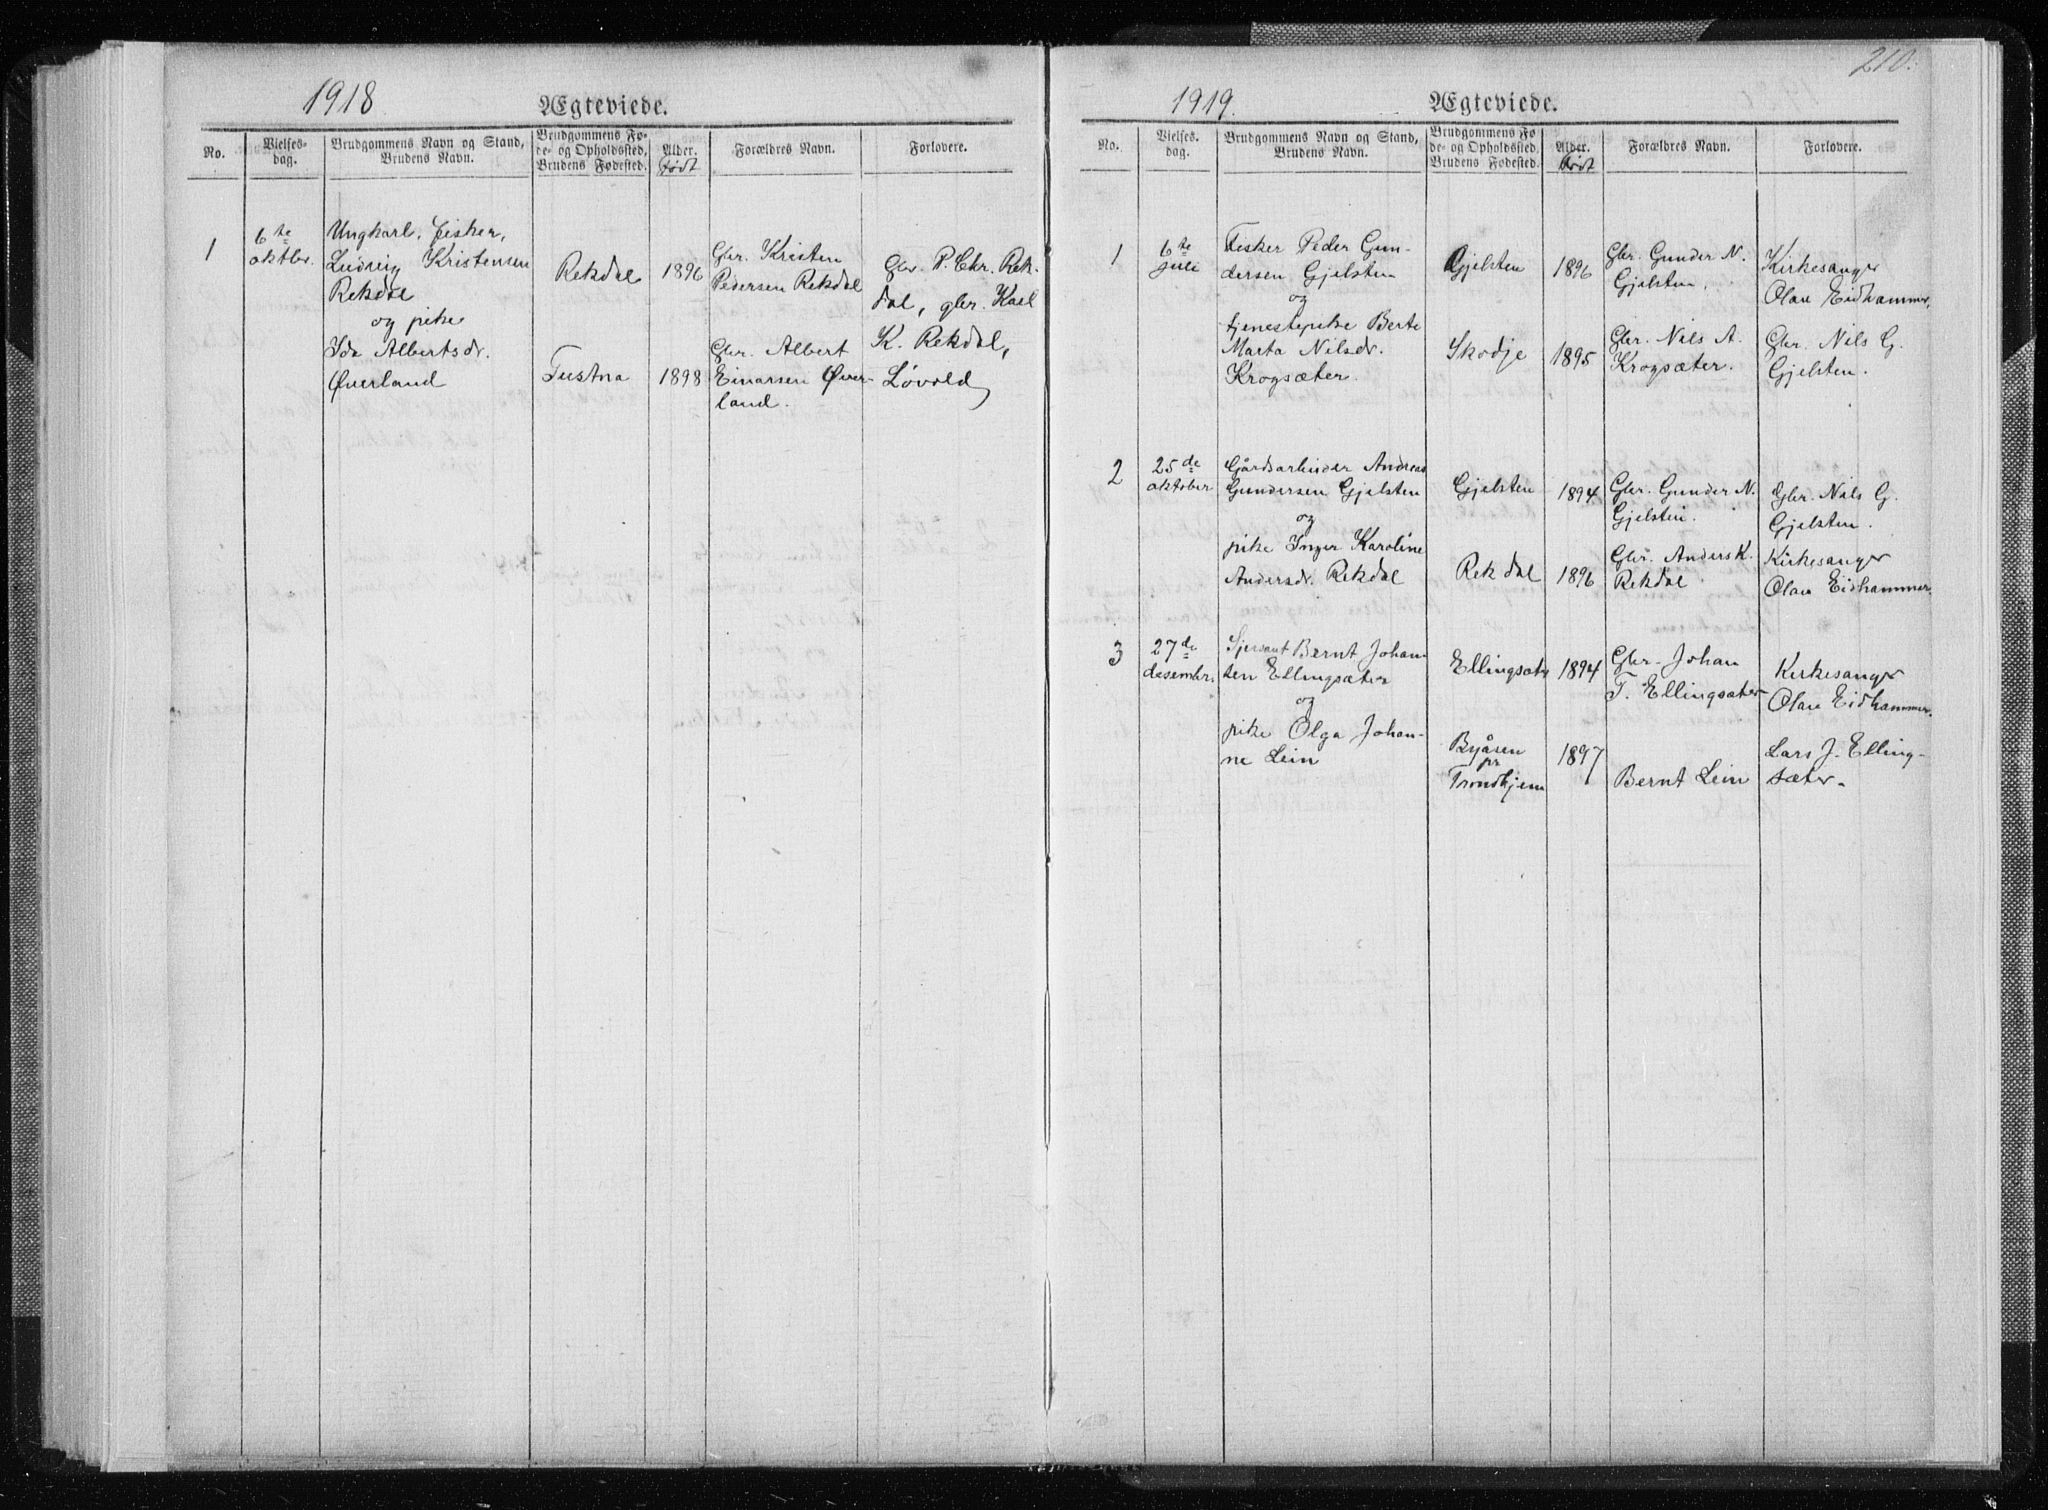 1918
Ægteviede.
No.
Vielses-
dag.
Brudgommens Navn og Stand,
Brudens Navn.
Brudgommens Fø-
de- og Opholdssted,
Brudens Fødested.
Alder.
født
Forældres Navn.
Forlovere.
1
6te
oktbr.
Ungkarl, fisker,
Ludvig Kristensen
Rekdal
og pike
Ida Albertsdr.
Øverland
Rekdal
Tustna
1896
1898
Gbr. Kristen
Pedersen Rekdal
Gbr. Albert
Einarsen Øver-
land.
Gbr. P. Chr. Rek-
dal, gbr. Karl
K. Rekdal,
Løvold
210.
1919.
Ægteviede.
No.
Vielses-
dag.
Brudgommens Navn og Stand,
Brudens Navn.
Brudgommens Fø
de- og Opholdssted,
Brudens Fødested.
Alder.
født
Forældres Navn.
Forlovere.
1
6te
juli
Fisker Peder Gun-
dersen Gjelsten
og
tjenestepike Berte
Marta Nilsdr.
Krogsæter.
Gjelsten
Skodje
1896
1895
Gbr. Gunder N.
Gjelsten.
Gbr. Nils A.
Krogsæter.
Kirkesanger
Olav Eidhammer,
Gbr. Nils G.
Gjelsten.
2
25de
oktober
Gårdsarbeider Andreas
Gundersen Gjelsten
og
pike Inger Karoline
Andersdr. Rekdal
Gjelsten
Rekdal
1894
1896
Gbr. Gunder N.
Gjelsten.
Gbr. Anders K.
Rekdal.
Gbr. Nils G.
Gjelsten.
Kirkesanger
Olav Eidhammer.
3
27de
desembr.
Sjersant Bernt Johan-
sen Ellingsæter
og
pike Olga Johan-
ne Lein
Ellingsæter
Byåsen
pr
Trondhjem
1894
1897
Gbr. Johan
T. Ellingsæter
Bernt Lein
Kirkesanger
Olav Eidhammer.
Lars J. Elling-
sæter.